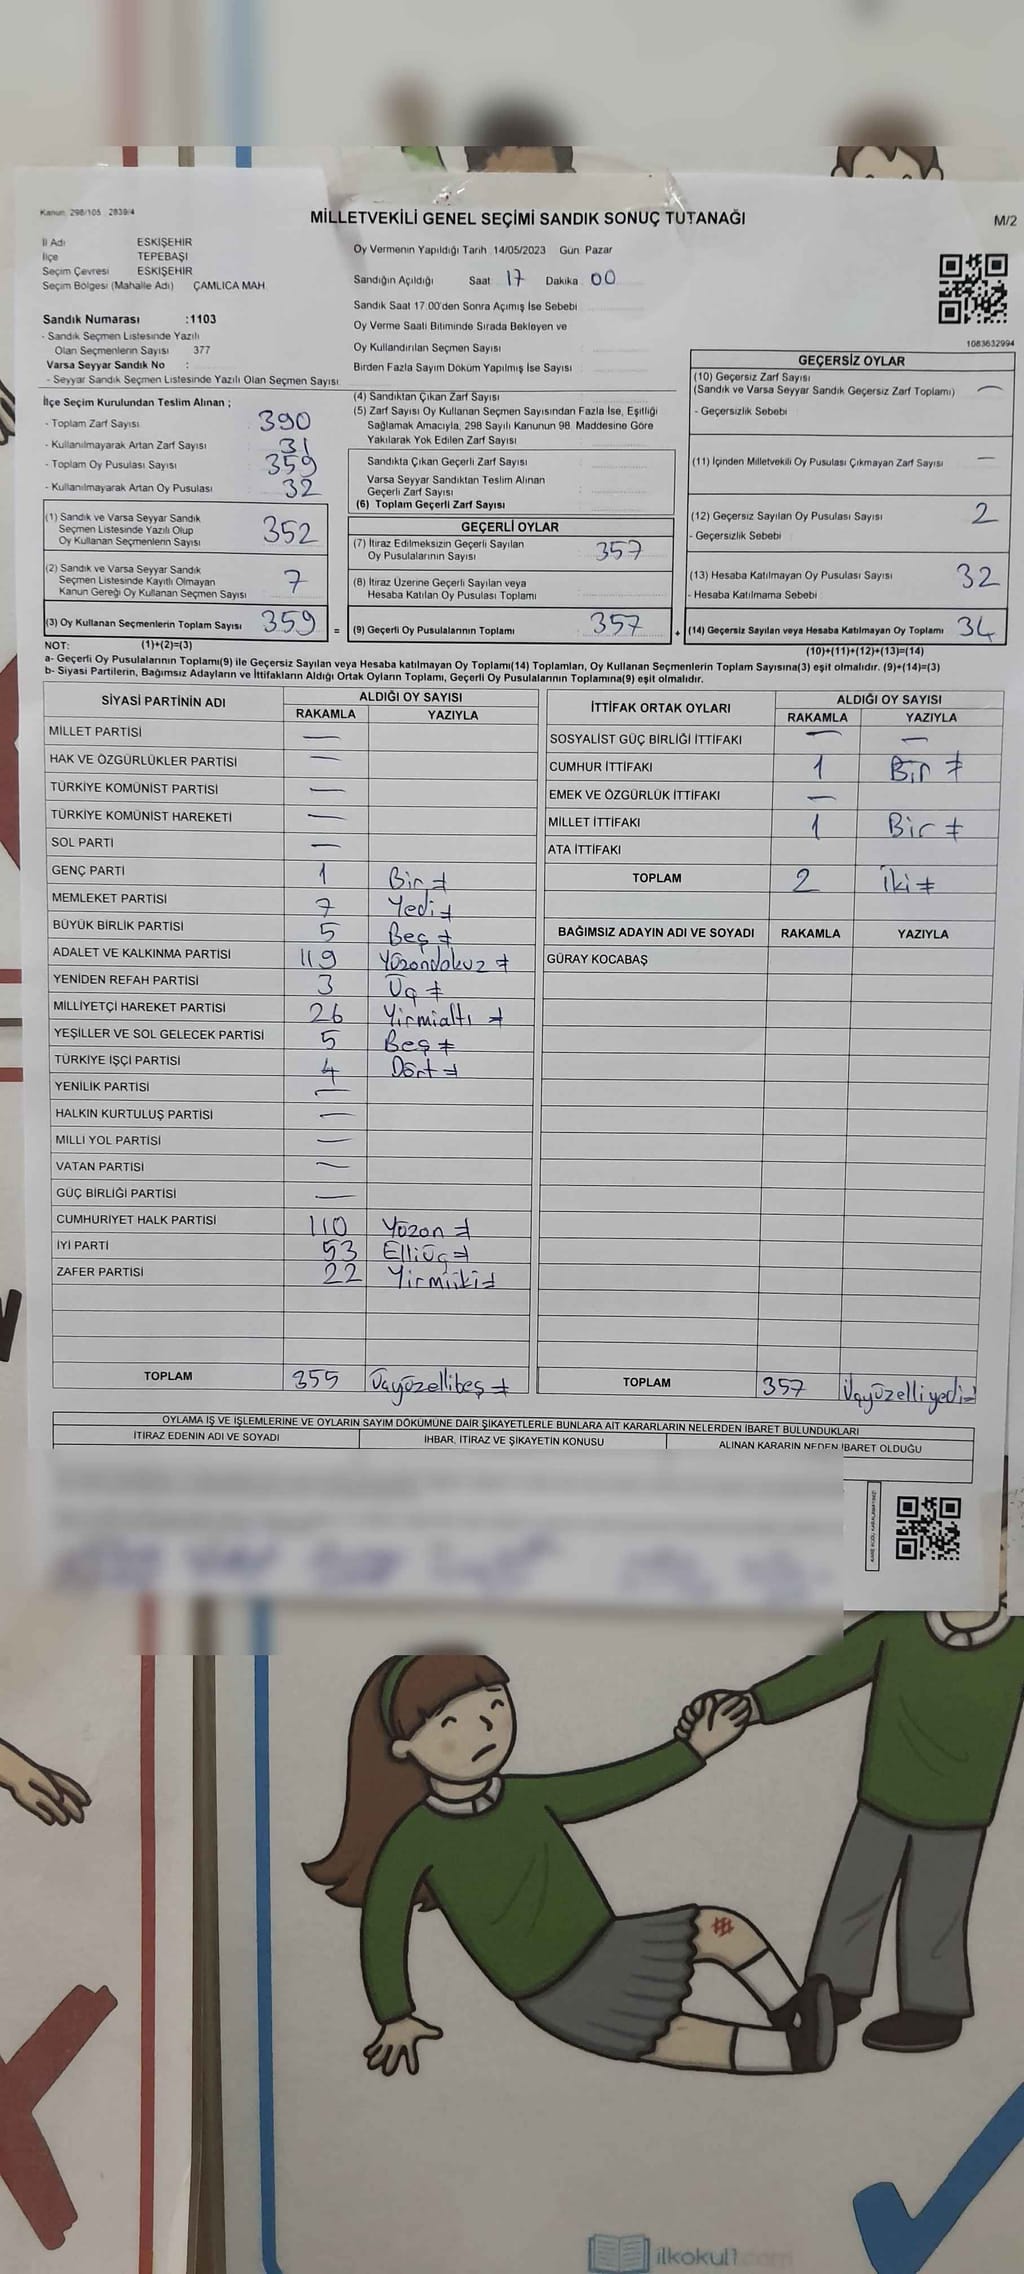 Kanun: 298/105 : 2839/4
MİLLETVEKİLİ GENEL SEÇİMİ SANDIK SONUÇ TUTANAĞI
M/2
İl Adı ESKİŞEHİR
İlçe TEPEBAŞI
Seçim Çevresi ESKİŞEHİR
Seçim Bölgesi (Mahalle Adı) ÇAMLICA MAH
Sandık Numarası :1103
- Sandık Seçmen Listesinde Yazılı
Olan Seçmenlerin Sayısı 377
Varsa Seyyar Sandık No :
- Seyyar Sandık Seçmen Listesinde Yazılı Olan Seçmen Sayısı:
Oy Vermenin Yapıldığı Tarih :14/05/2023 Gün: Pazar
Sandığın Açıldığı Saat: 17 Dakika: 00
Sandık Saat 17.00'den Sonra Açımış İse Sebebi
Oy Verme Saati Bitiminde Sırada Bekleyen ve
Oy Kullandırılan Seçmen Sayısı
Birden Fazla Sayım Döküm Yapılmış İse Sayısı
1083632994
İlçe Seçim Kurulundan Teslim Alınan ;
- Toplam Zarf Sayısı 390
- Kullanılmayarak Artan Zarf Sayısı 31
- Toplam Oy Pusulası Sayısı 359
- Kullanılmayarak Artan Oy Pusulası 32
(1) Sandık ve Varsa Seyyar Sandık
Seçmen Listesinde Yazılı Olup
Oy Kullanan Seçmenlerin Sayısı 352
(2) Sandık ve Varsa Seyyar Sandık
Seçmen Listesinde Kayıtlı Olmayan
Kanun Gereği Oy Kullanan Seçmen Sayısı 7
(3) Oy Kullanan Seçmenlerin Toplam Sayısı 359 =
(4) Sandıktan Çıkan Zarf Sayısı
(5) Zarf Sayısı Oy Kullanan Seçmen Sayısından Fazla İse, Eşitliği
Sağlamak Amacıyla, 298 Sayılı Kanunun 98. Maddesine Göre
Yakılarak Yok Edilen Zarf Sayısı
Sandıkta Çıkan Geçerli Zarf Sayısı
Varsa Seyyar Sandıktan Teslim Alınan
Geçerli Zarf Sayısı
(6) Toplam Geçerli Zarf Sayısı
GEÇERLİ OYLAR
(7) İtiraz Edilmeksizin Geçerli Sayılan
Oy Pusulalarının Sayısı 357
(8) İtiraz Üzerine Geçerli Sayılan veya
Hesaba Katılan Oy Pusulası Toplamı
(9) Geçerli Oy Pusulalarının Toplamı 357 +
GEÇERSİZ OYLAR
(10) Geçersiz Zarf Sayısı
(Sandık ve Varsa Seyyar Sandık Geçersiz Zarf Toplamı) —
- Geçersizlik Sebebi
(11) İçinden Milletvekili Oy Pusulası Çıkmayan Zarf Sayısı —
(12) Geçersiz Sayılan Oy Pusulası Sayısı 2
- Geçersizlik Sebebi
(13) Hesaba Katılmayan Oy Pusulası Sayısı 32
- Hesaba Katılmama Sebebi
(14) Geçersiz Sayılan veya Hesaba Katılmayan Oy Toplamı 34
NOT: (1)+(2)=(3) (10)+(11)+(12)+(13)=(14)
a- Geçerli Oy Pusulalarının Toplamı(9) ile Geçersiz Sayılan veya Hesaba katılmayan Oy Toplamı(14) Toplamları, Oy Kullanan Seçmenlerin Toplam Sayısına(3) eşit olmalıdır. (9)+(14)=(3)
b- Siyasi Partilerin, Bağımsız Adayların ve İttifakların Aldığı Ortak Oyların Toplamı, Geçerli Oy Pusulalarının Toplamına(9) eşit olmalıdır.
SİYASİ PARTİNİN ADI ALDIĞI OY SAYISI
RAKAMLA YAZIYLA
MİLLET PARTİSİ —
HAK VE ÖZGÜRLÜKLER PARTİSİ —
TÜRKİYE KOMÜNİST PARTİSİ —
TÜRKİYE KOMÜNİST HAREKETİ —
SOL PARTİ —
GENÇ PARTİ 1 Bir ≠
MEMLEKET PARTİSİ 7 Yedi ≠
BÜYÜK BİRLİK PARTİSİ 5 Beş ≠
ADALET VE KALKINMA PARTİSİ 119 Yüzondokuz ≠
YENİDEN REFAH PARTİSİ 3 Üç ≠
MİLLİYETÇİ HAREKET PARTİSİ 26 Yirmialtı ≠
YEŞİLLER VE SOL GELECEK PARTİSİ 5 Beş ≠
TÜRKİYE İŞÇİ PARTİSİ 4 Dört ≠
YENİLİK PARTİSİ —
HALKIN KURTULUŞ PARTİSİ —
MİLLİ YOL PARTİSİ —
VATAN PARTİSİ —
GÜÇ BİRLİĞİ PARTİSİ —
CUMHURİYET HALK PARTİSİ 110 Yüzon ≠
İYİ PARTİ 53 Elliüç ≠
ZAFER PARTİSİ 22 Yirmiiki ≠
TOPLAM 355 Üçyüzellibeş ≠
İTTİFAK ORTAK OYLARI ALDIĞI OY SAYISI
RAKAMLA YAZIYLA
SOSYALİST GÜÇ BİRLİĞİ İTTİFAKI — —
CUMHUR İTTİFAKI 1 Bir ≠
EMEK VE ÖZGÜRLÜK İTTİFAKI —
MİLLET İTTİFAKI 1 Bir ≠
ATA İTTİFAKI
TOPLAM 2 İki ≠
BAĞIMSIZ ADAYIN ADI VE SOYADI RAKAMLA YAZIYLA
GÜRAY KOCABAŞ
TOPLAM 357 Üçyüzelliyedi ≠
OYLAMA İŞ VE İŞLEMLERİNE VE OYLARIN SAYIM DÖKÜMÜNE DAİR ŞİKAYETLERLE BUNLARA AİT KARARLARIN NELERDEN İBARET BULUNDUKLARI
İTİRAZ EDENİN ADI VE SOYADI İHBAR, İTİRAZ VE ŞİKAYETİN KONUSU ALINAN KARARIN NEDEN İBARET OLDUĞU
ilkokul1.com